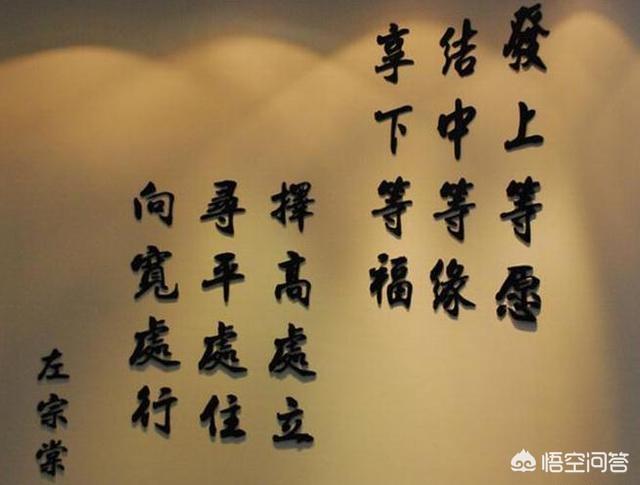 發上等愿
结中等緣
享下等福
擇高處立
尋平處住
向寬處行
左宗棠
悟空问答